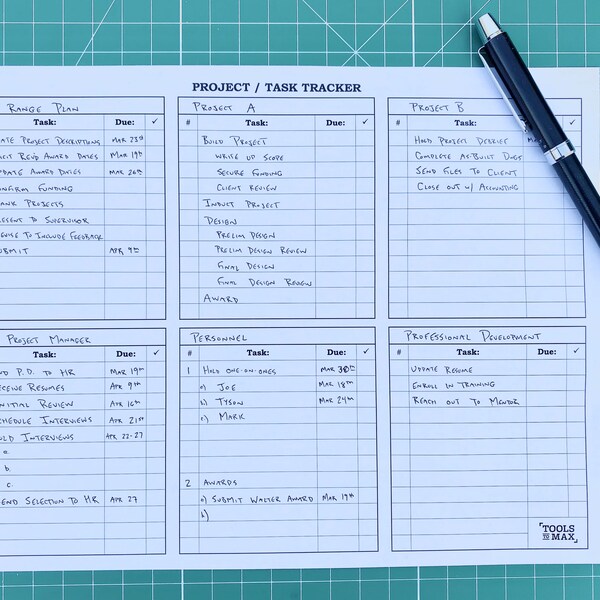 PROJECT / TASK TRACKER
RANGE PLAN
Task: Due: ✓
ATE PROJECT DESCRIPTIONS MAR 23rd
REV'D AWARD DATES MAR 19th
PDATE AWARD DATES MAR 26th
ONFIRM FUNDING
ANK PROJECTS
ESENT TO SUPERVISOR
TO INCLUDE FEEDBACK
UBMIT APR 9th
PROJECT A
# Task: Due: ✓
BUILD PROJECT
WRITE UP SCOPE
SECURE FUNDING
CLIENT REVIEW
INDUCT PROJECT
DESIGN
PRELIM DESIGN
PRELIM DESIGN REVIEW
FINAL DESIGN
FINAL DESIGN REVIEW
AWARD
PROJECT B
# Task: ✓
HOLD PROJECT DEBRIEF
COMPLETE AS-BUILT DOCS
SEND FILES TO CLIENT
CLOSE OUT W/ ACCOUNTING
PROJECT MANAGER
Task: Due: ✓
ND P.D. TO HR MAR 19th
CEIVE RESUMES APR 9th
NITIAL REVIEW APR 16th
CHEDULE INTERVIEWS APR 21st
OLD INTERVIEWS APR 22-27
a.
b.
c.
END SELECTION TO HR APR 27
PERSONNEL
# Task: Due: ✓
1 HOLD ONE-ON-ONES MAR 30th
a) JOE MAR 18th
b) TYSON MAR 24th
c) MARK
2 AWARDS
a) SUBMIT WALTER AWARD MAR 19th
b)
PROFESSIONAL DEVELOPMENT
# Task: Due: ✓
UPDATE RESUME
ENROLL IN TRAINING
REACH OUT TO MENTOR
TOOLS
TO MAX